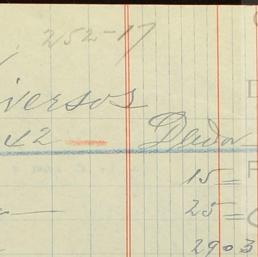 252-17
iversos
12 Dedor
15=
25=
2903